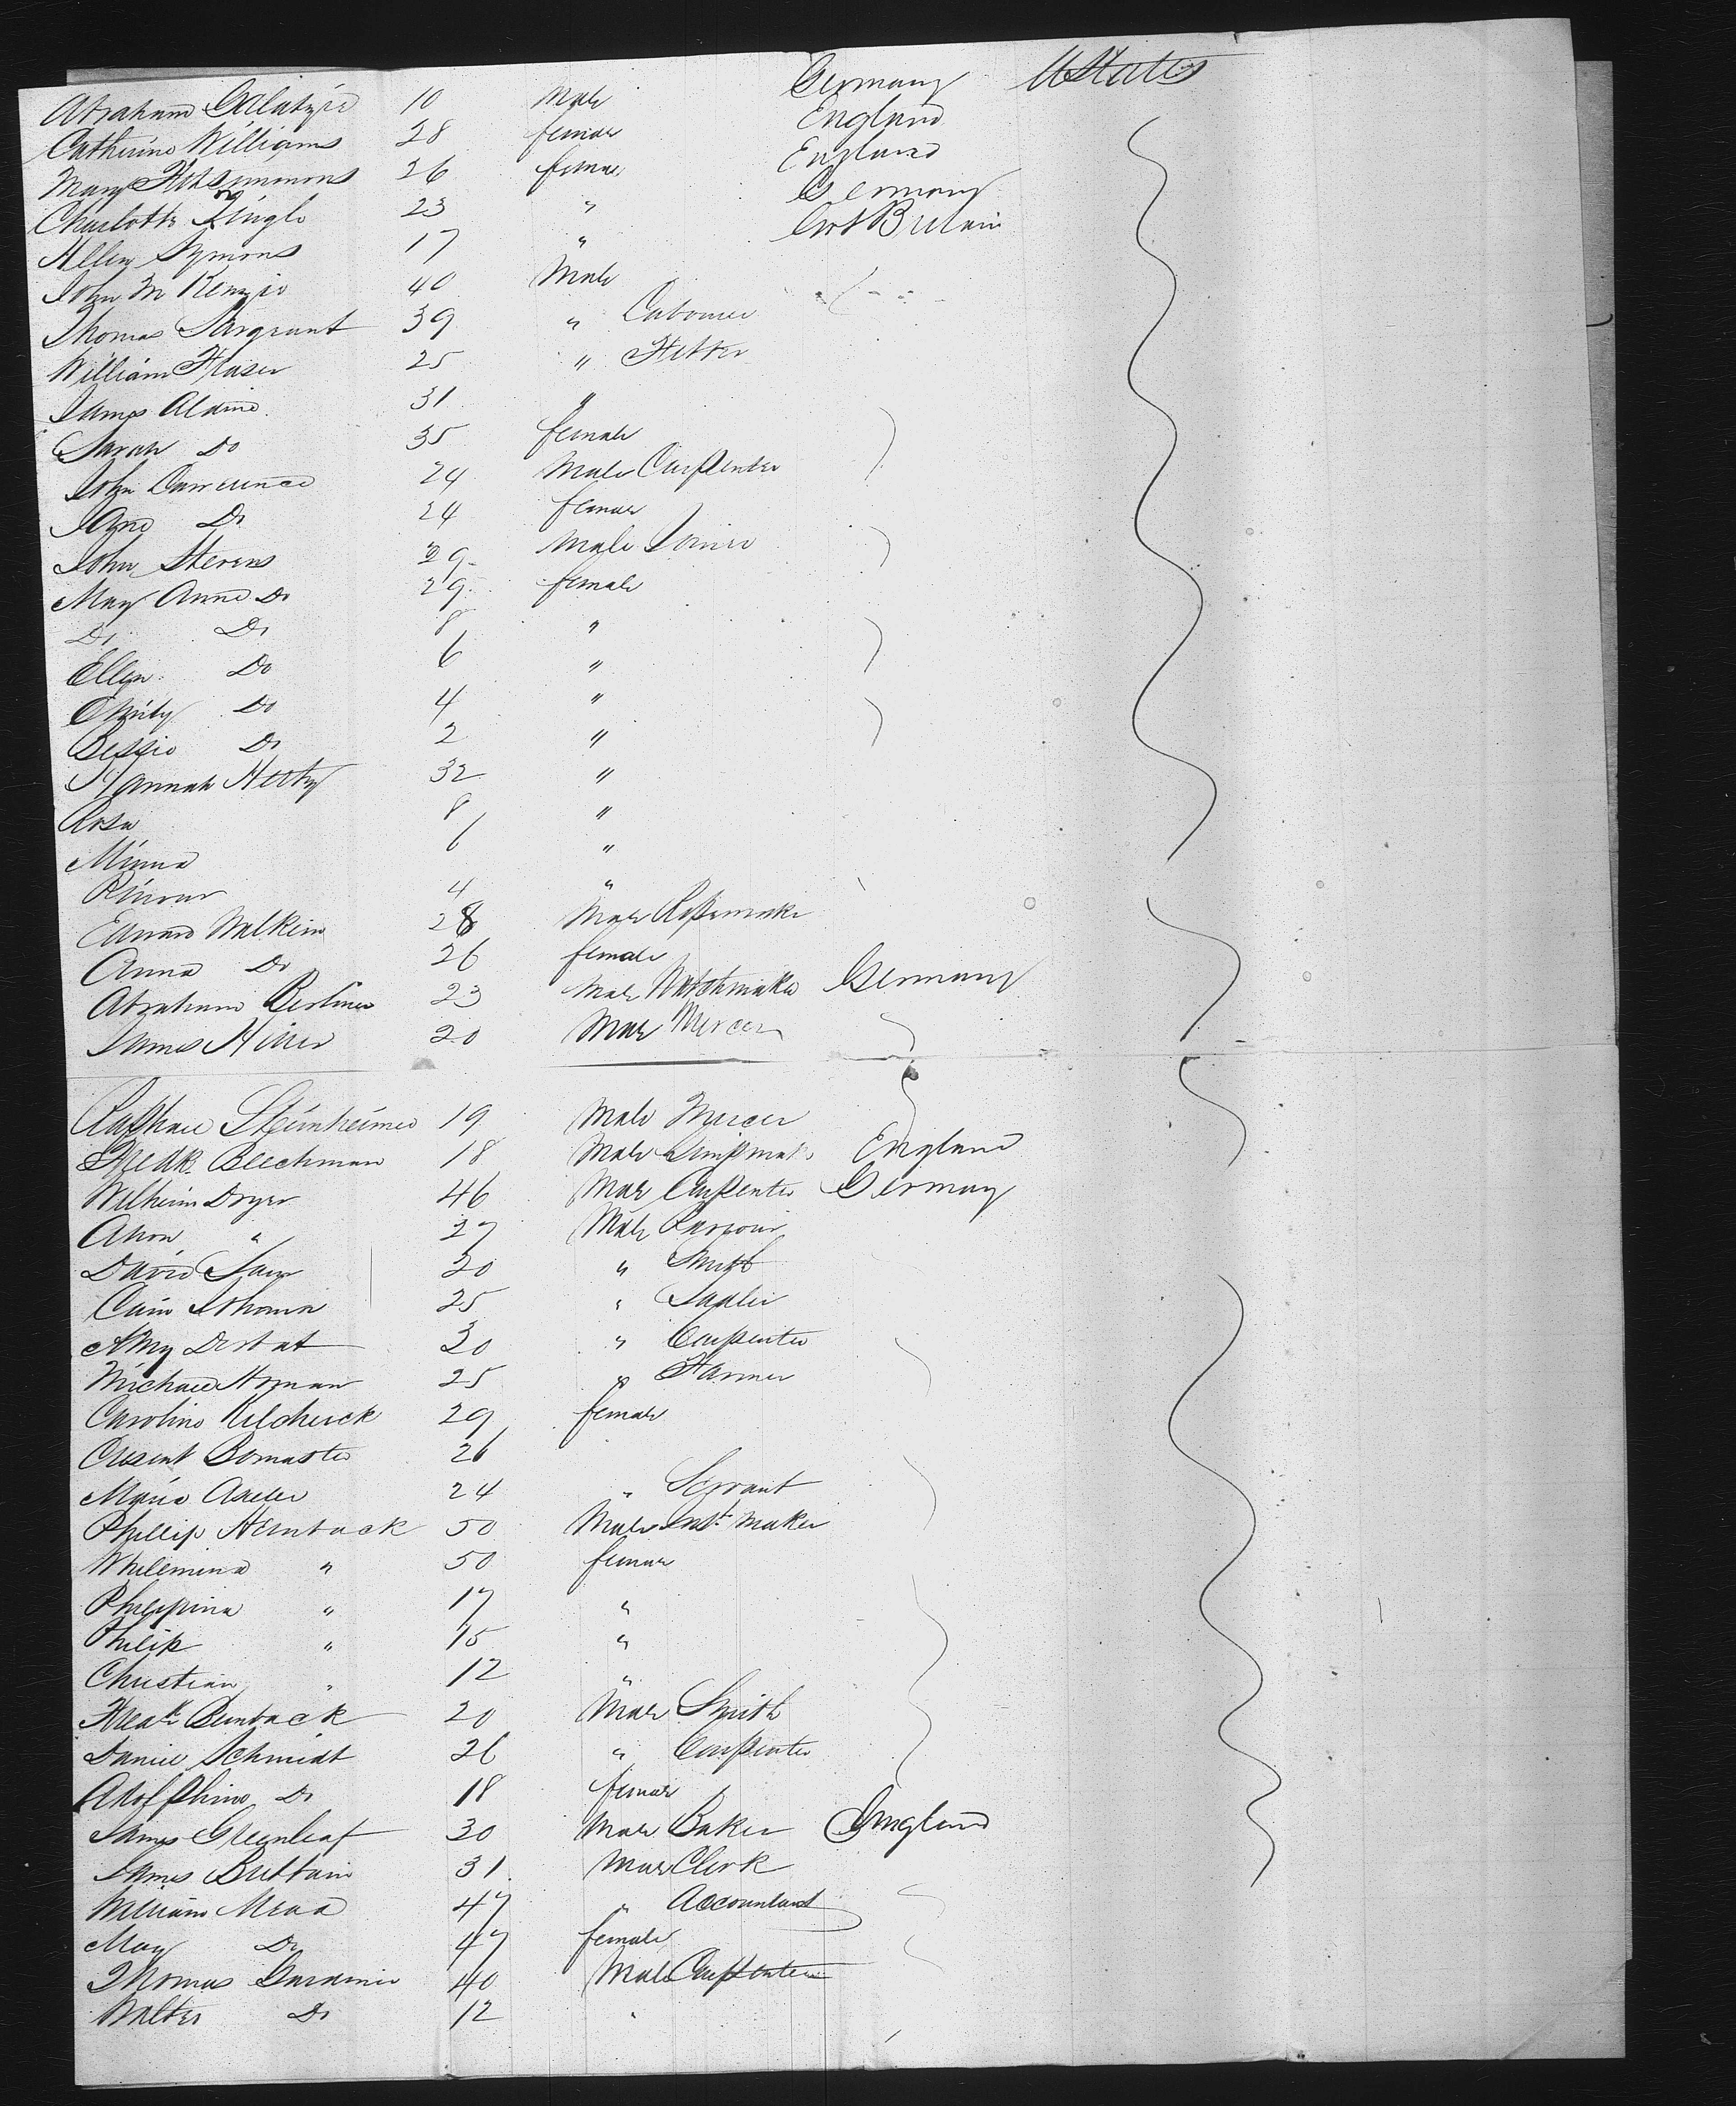 Abraham Galatzie 10 Male Germany UStates
Catherine Williams 28 female England
Mary Fitzsimmons 26 female England
Charlotte Single 23 " Germany
Allen Symons 17 " Grt Britain
John McKenzie 40 Male
Thomas Sargeant 39 " Labourer
William Fraser 25 " Fitter
James Aldine 31 "
Sarah Do 35 female
John Lawrence 24 Male Carpenter
Jane Do 24 female
John Stevens 29 Male Joiner
Mary Anne Do 29 female
Do Do 8 "
Ellen Do 6 "
Emily Do 4 "
Bessie Do 2 "
Hannah 32 "
Rosa 8 "
Minna 6 "
4 "
Edward Walkin 28 Male Ropemaker
Anna Do 26 female
Abraham Berliner 23 Male Watchmaker Germany
James Hiner 20 Male Mercer
Raphael Steinheimer 19 Male Mercer
Fredk Beechman 18 Male England
Wilheim Dryer 46 Male Carpenter Germany
Aron " 27 Male
David Sam 20 " Smith
25 " Sadler
30 " Carpenter
Michael Homan 25 " Farmer
Caroline Kilcherick 29 female
Cresent Bomaster 26
Maria 24 " Servant
Phillip Hernback 50 Male Inst. Maker
Whilemina " 50 female
Philippina " 17 "
Philip " 15 "
Christian " 12 "
Fredk Bernback 20 Male Smith
Daniel Schmidt 26 " Carpenter
Adolphine Do 18 female
James Greenleaf 30 Male Baker England
James Brittain 31 Male Clerk
William Mead 47 " Accountant
Mary Do 47 female
Thomas Gardiner 40 Male Carpenter
Walter Do 12 "